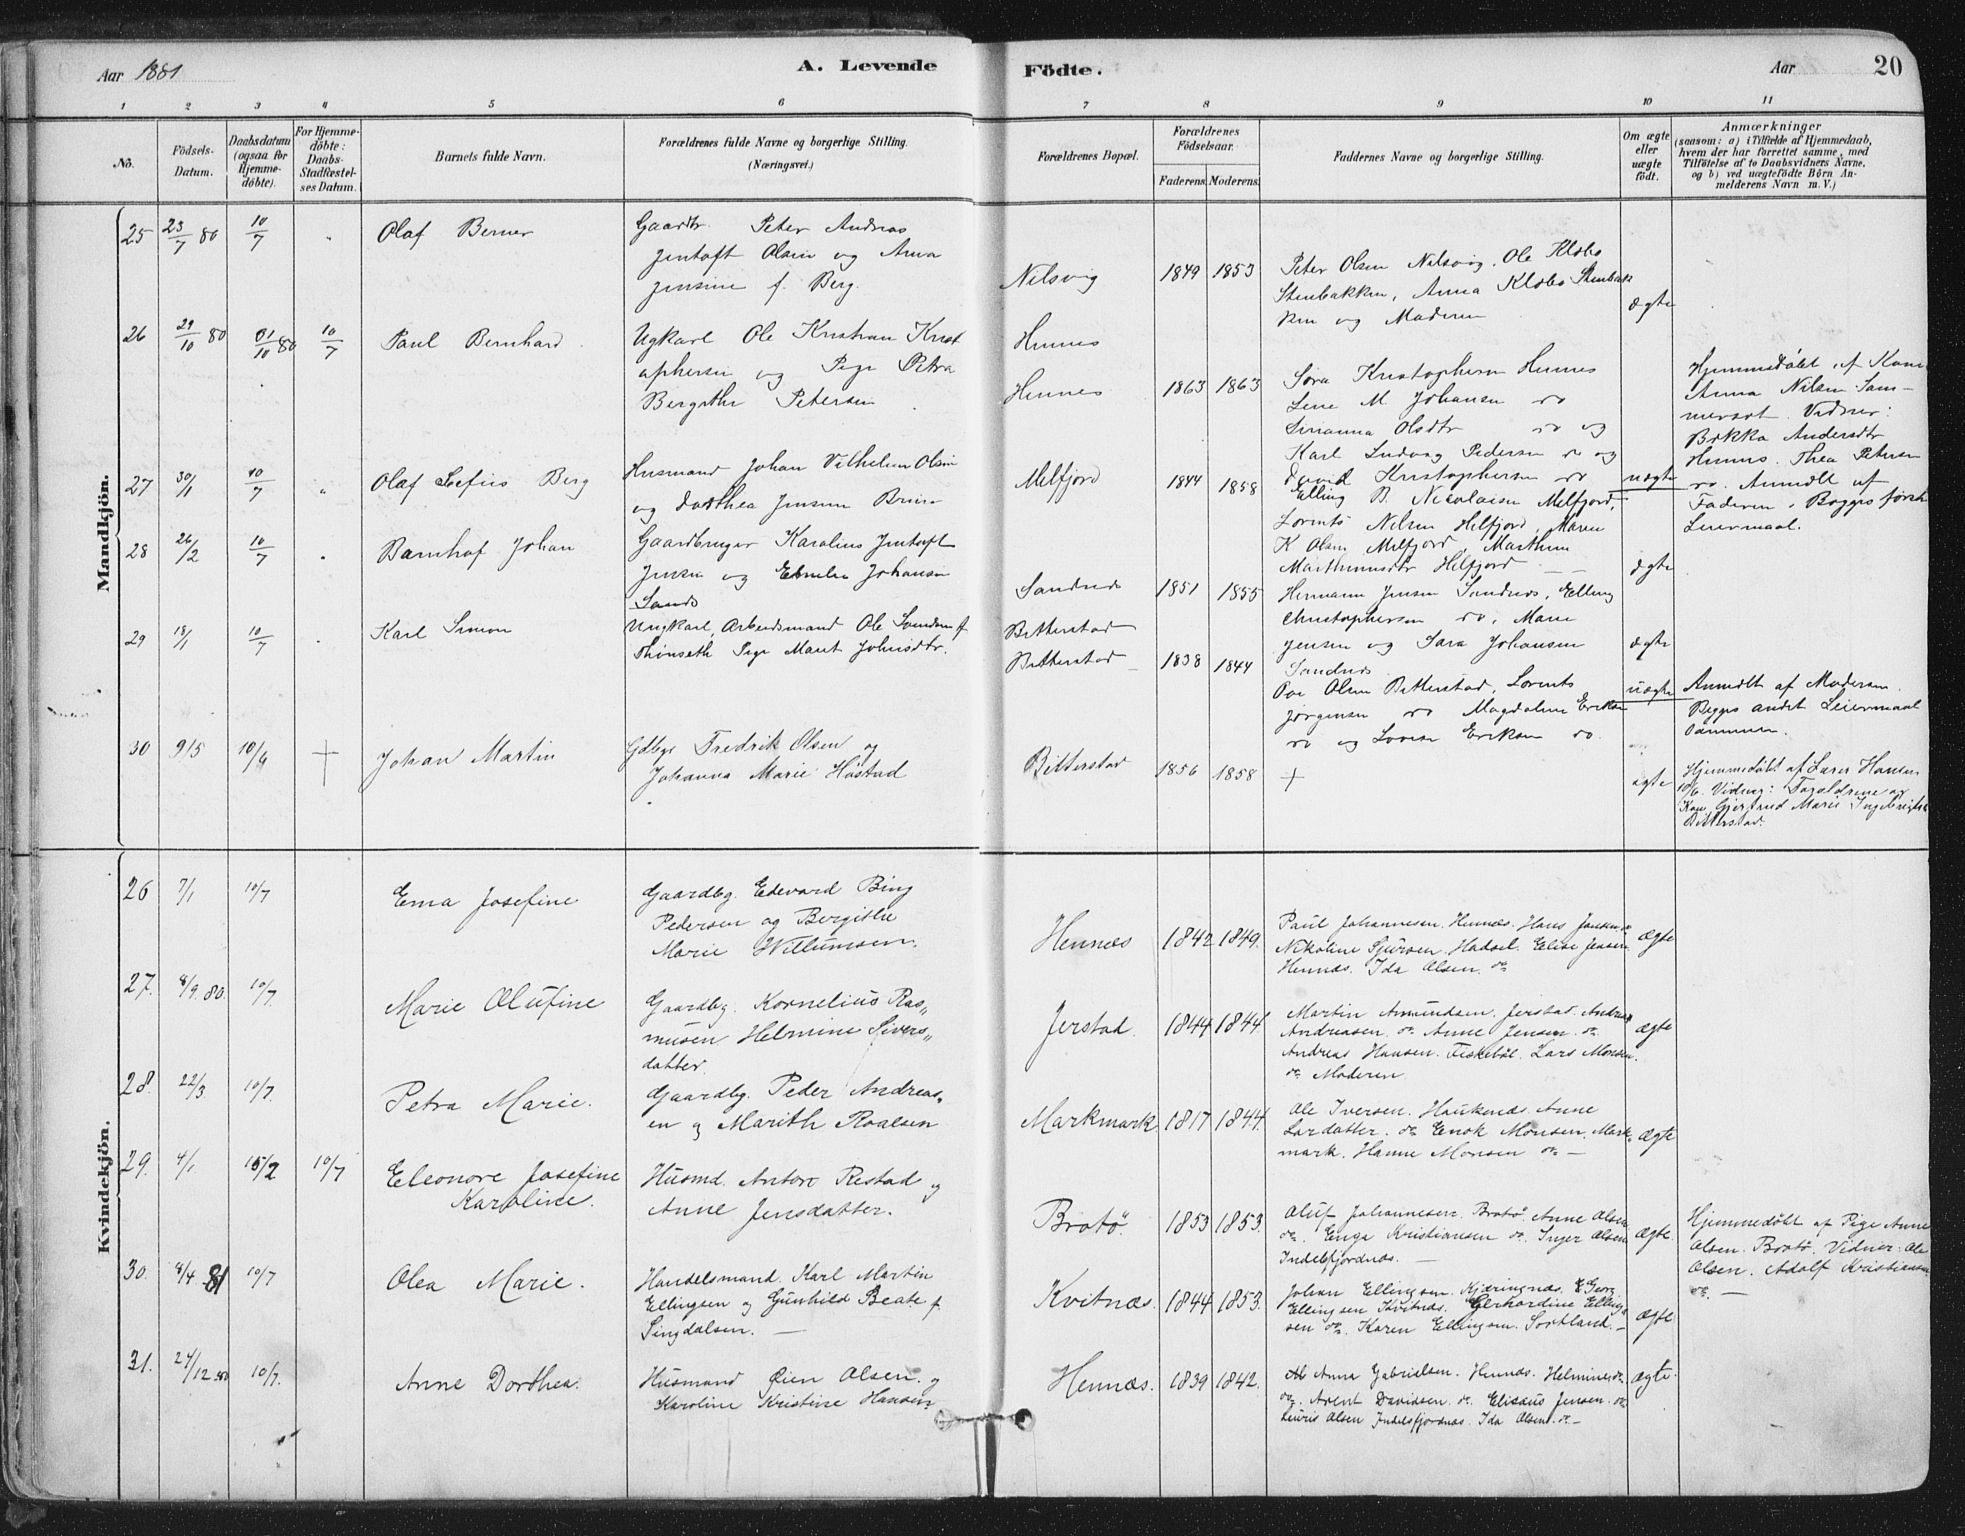 Aar 1881
A. Levende
Födte.
Aar
20
1 2 3 4 5 6 7 8 9 10 11
No.
Födsels-
Datum.
Daabsdatum
(ogsaa for
Hjemme-
döbte).
For Hjemme-
döbte:
Daabs-
Stadfæstel-
ses Datum.
Barnets fulde Navn.
Forældrenes fulde Navne og borgerlige Stilling.
(Næringsvei.)
Forældrenes Bopæl.
Forældrenes
Födselsaar.
Faderens. Moderens.
Faddernes Navne og borgerlige Stilling.
Om ægte
eller
uægte
födt.
Anmærkninger
(saasom: a) i Tilfælde af Hjemmedaab,
hvem der har forrettet samme, med
Tilföielse af to Daabsvidners Navne,
og b) ved uægtefödte Börn An-
melderens Navn m. V.)
Mandkjön.
25 23/7 80 10/7 Olaf Berner
Gaardbr. Peter Andreas
Jentoft Olsen og Anna
Jensine f. Berg.
Nilsvig 1849 1853
Peter Olsen Nilsvig, Ole Klæbo
Stenbakken, Anna Klæbo Stenbak
ken og Moderen
ægte
26 29/10 80 31/10 80 10/7 Paul Bernhard
Ugkarl Ole Kristian Krist
ophersen og Pige Petra
Bergithe Petersen
Hennes
Hennes 1863 1863
Sora Kristophersen Hennes
Lene M. Johansen do
Olsdtr do og
Karl Ludvig Pedersen do og
David Kristophersen do
uægte
Hjemmedøbt af Kone
Anna Nilsen Sam-
Vidner:
Andersdtr
Hennes. Thea Petersen
do. Anmeldt af
Faderen. Begges første
Leiermaal.
27 30/1 10/7 Olaf Sefius Berg
Husmand Johan Vilhelm Olsen
og Dorthea Jensen
Melfjord 1844 1858
Elling B. Nicolaisen Melfjord,
Lorents Nilsen Melfjord, Maren
K Olsen Melfjord, Marthine
Marthinusdtr Melfjord
ægte
28 26/2 10/7 Barnhof Johan
Gaardbruger Karolius Jentoft
Jensen og Emelie Johansen
Sands
Sandnes 1851 1855
Hermann Jensen Sandnes, Elling
Christophersen do, Marie
Jensen og Sara Johansen
Sandnes
ægte
29 18/1 10/7 Karl Simon
Ungkarl, Arbeidsmand Ole Svendsen f.
Thønseth Pige Marit Johnsdtr.
Bitterstad
Bitterstad 1838 1844
Olsen Bitterstad, Lorents
Jørgensen do Magdalene Eriksen
do og Lovise Eriksen do.
uægte
Anmeldt af Moderen.
Begges andet Leiermaal
sammen.
30 9/5 10/6 † Johan Martin
Gdbgr Fredrik Olsen og
Johanna Marie Høstad
Bitterstad 1856 1858 † ægte
Hjemmedøbt af Larer Hansen
10/6. Vidner: Forældrene og
Kone Gjertrud Marie Ingebrigtsd
Bitterstad.
Kvindekjön.
26 7/1 10/7 Ema Josefine
Gaardbg. Edevard Bing
Pedersen og Bergithe
Marie Willumsen.
Hennæs 1842 1849.
Paul Johannesen. Hennæs. Hans Jensen do
Nikoline Sjursen. Hadsel. Elise Jensen.
Hennæs. Ida Olsen. do
ægte
27. 8/9 80. 10/7. Marie Olufine
Gaardbg. Kornelius Ras„
musen Helmine Sivers„
datter.
Jerstad. 1844 1844.
Martin Amundsen. Jerstad. Andreas
Andreasen. do Anne Jensen. do
Andreas Hansen. Fiskebøl. Lars Monsen.
do Moderen
ægte
28. 22/3. 10/7. Petra Marie.
Gaardbg. Peder Andreas„
en og Marith Roalsen
Markmark. 1817 1844.
Ole Iversen. Haukenæs. Anne
Larsdatter. do Enok Monsen. Mark„
mark. Hanne Monsen do —
ægte
29. 4/1. 15/2 10/7 Eleonore Josefine
Karoline.
Husmd. Anton Restad og
Anne Jensdatter.
Brotö. 1853 1853.
Oluf Johannesen. Brotö. Anne Olsen
do. Enga Kristiansen do. Inger Olsen
Indlefjordnæs. —
ægte.
Hjemmedøbt af Pige Anne
Olsen. Brotö. Vidner: Ole
Olsen. Adolf Kristiansen
do. —
30. 8/4 81 10/7 Olea Marie.
Handelsmand. Karl Martin
Ellingsen og Gunhild Beate f.
Singdalsen. —
Kvitnæs. 1844 1853.
Johan Ellingsen. Kjæringnæs. E Georg
Ellingsen Kvitnæs. Gerhardine Elling„
sen do. Karen Ellingsen. Sortland. —
ægte.
31. 24/12 80 10/7. Anne Dorthea.
Husmand Øien Olsen. og
Karoline Kristine Hansen
Hennæs. 1839 1842.
Anna Gabrielsen. Hennæs. Helmine do
do. Arent Davidsen. do. Elisæus Jensen. do
Lauris Olsen Indlefjordnæs. Ida Olsen. do —
ægte.